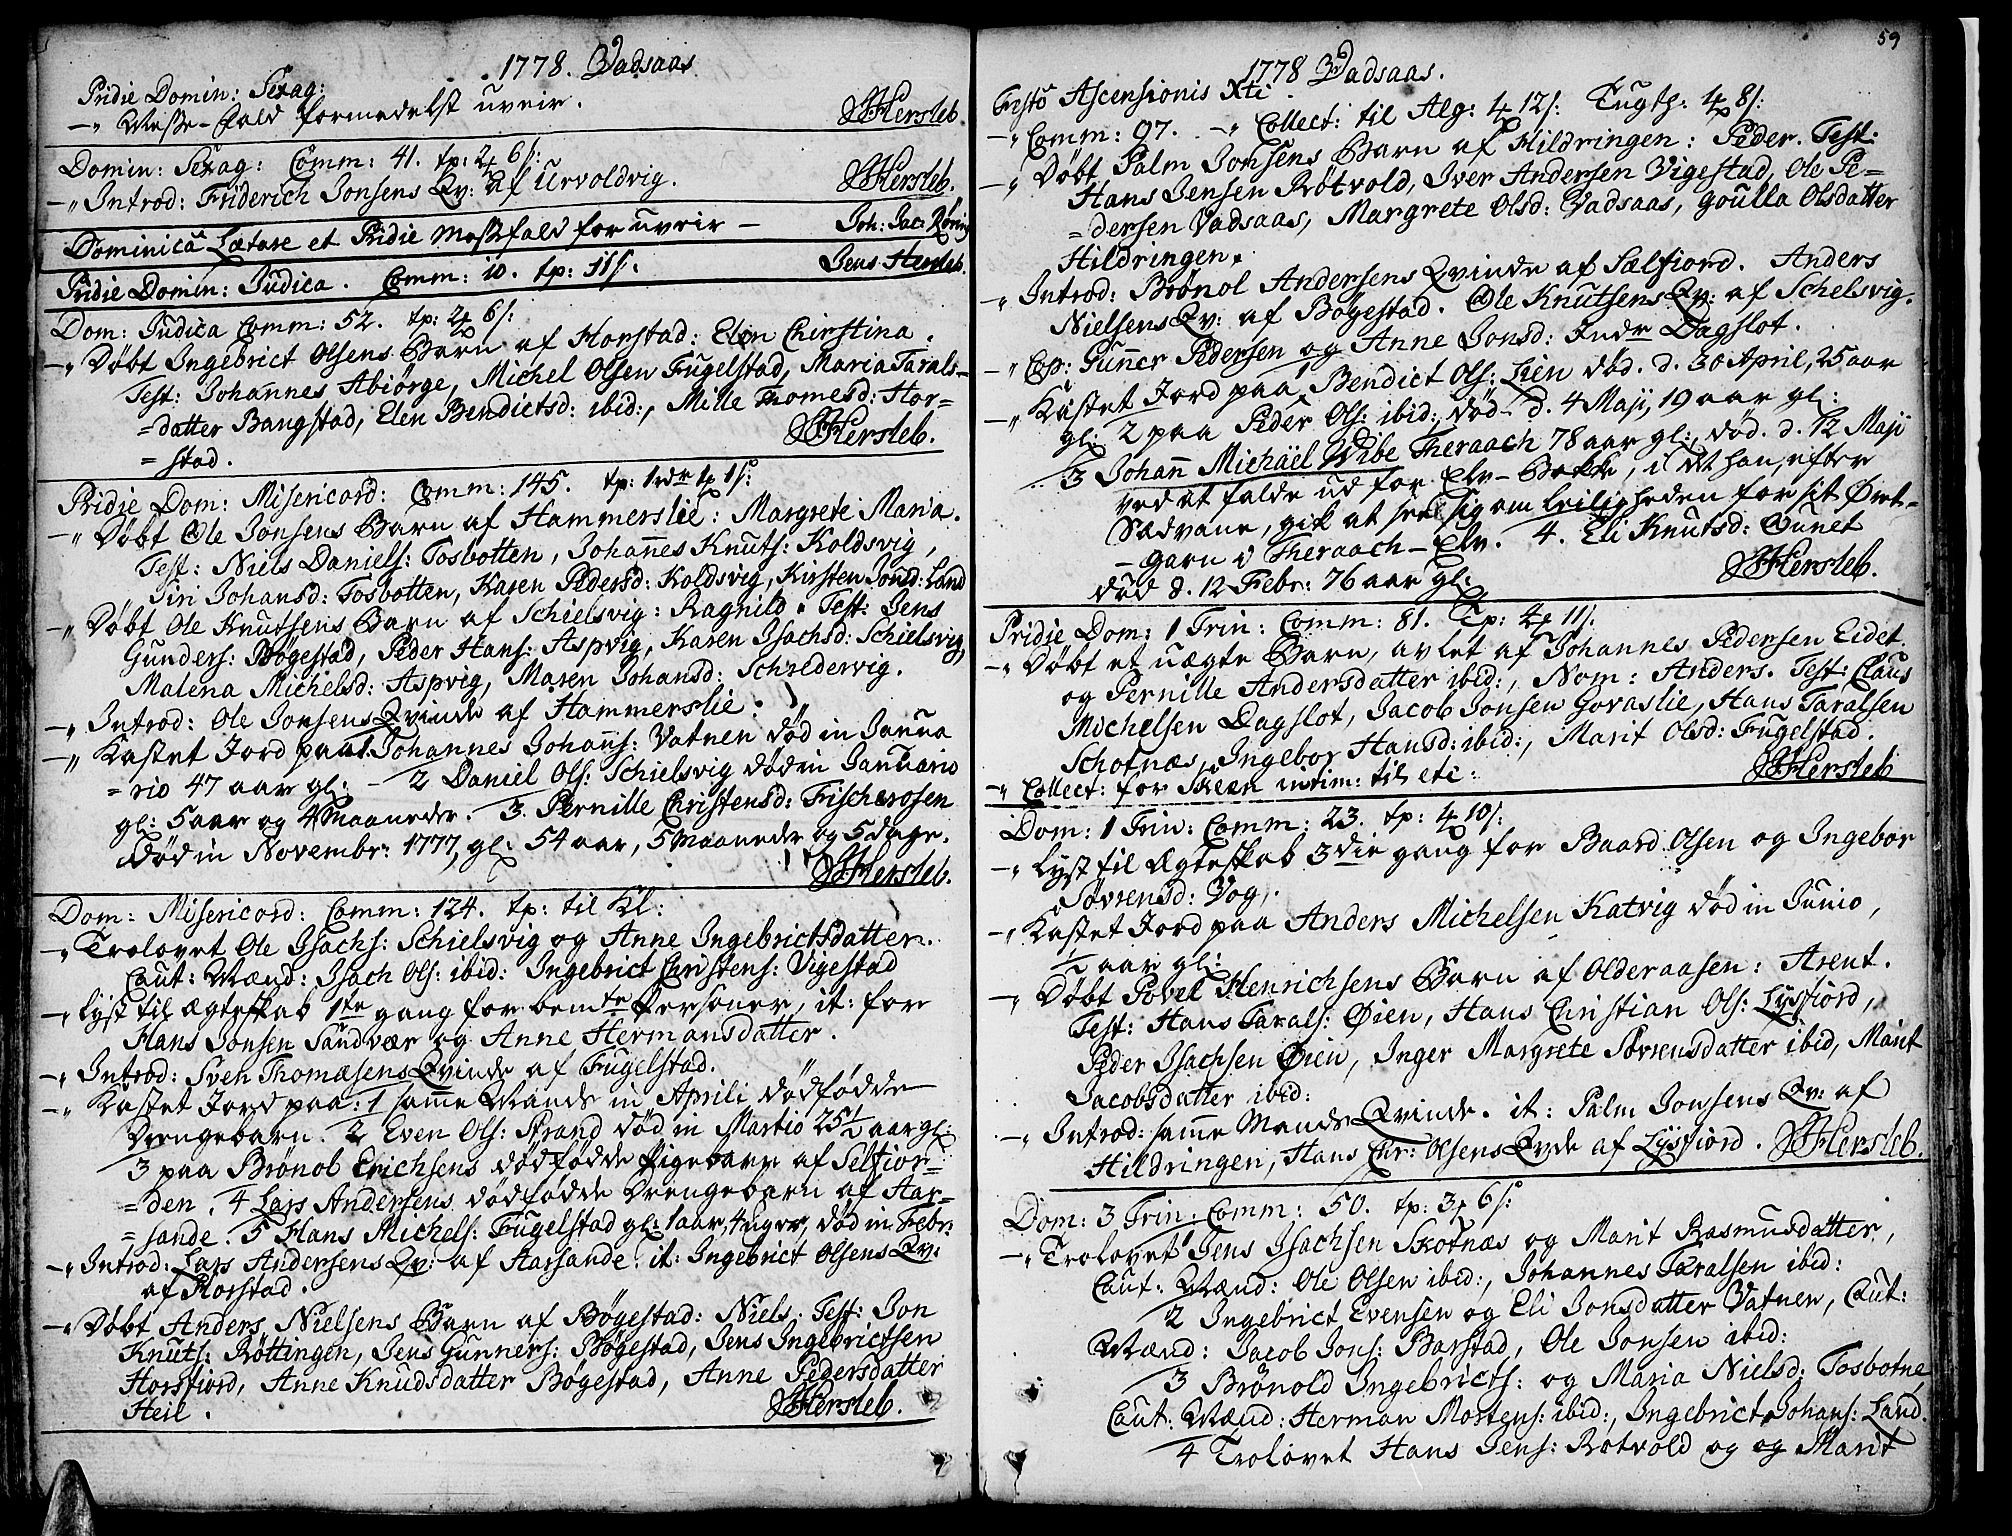 1778. Vadsaas
Pridie Domin: Sexag:
–" Messe-fald formedelst uveir.
JHersleb.
Domin: Sexag: Comm: 41. tp: 2 6 ß:
–" Introd: Friderich Jonsens Qv: af Urvoldvig.
JHersleb.
Dominicâ Lætare et Pridie Messefald for uveir –
Joh: Jac: Röring
Pridie Domin: Judica. Comm: 10. tp: 11ß.
Jens Hersleb.
Dom: Judica Comm: 52. tp: 2 6 ß:
–" Døbt Ingebrict Olsens Barn af Horstad: Elen Chirstina.
Test: Johannes Abiørge, Michel Olsen Fugelstad, Maria Tarals-
=datter Bangstad, Elen Bendictsd: ibid:, Mille Thomesd: Hor=
=stad.
JHersleb.
Pridie Dom: Misericord: Comm: 145. tp: 1 rdr 1 1 ß:
–" Døbt Ole Jonsens Barn af Hammerslie: Margrete Maria.
Test: Niels Daniels: Tosbotten, Johannes Knuts: Koldsvig,
Siri Johansd: Tosbotten, Karen Pedersd: Koldsvig, Kirsten Jonsd: Land
–" Døbt Ole Knutsens Barn af Schielsvig: Ragnild. Test: Jens
Gunders: Bøgestad, Peder Hans: Aspvig, Karen Isachsd: Schielsvig,
Malena Michelsd: Aspvig, Maren Johansd: Schredervig.
–" Introd: Ole Jonsens Qvinde af Hammerslie.
–" Kastet Jord paa 1. Johannes Johans: Vatnen død in Janua
=rio 47 aar gl: – 2 Daniel Ols: Schielsvig død in Januario
gl: 5 aar og 4 Maaneder. 3. Pernille Christensd: Fischerosen
død in Novembr: 1777, gl: 54 aar, 5 Maaneder og 5 dage.
JHersleb.
Dom: Misericord: Comm: 124. tp: til Kl:
–" Trolovet Ole Isachs: Schielsvig og Anne Ingebrictsdatter.
Caut: Mænd: Isach Ols: ibid: Ingebrict Christens: Vigestad
–" Lyst til ægteskab 1ste gang for bemte Personer, it: for
Hans Jonsen Sandvær og Anne Hermansdatter.
–" Introd: Sven Thomæsens Qvinde af Fugelstad.
–" Kastet Jord paa: 1 samme Mands in Aprili dødfødde
Drengebarn. 2 Even Ols: Strand død in Martio 25 1/2 aar gl:
3 paa Brønol Erichsens dødfødde Pigebarn af Selfior-
=den. 4 Lars Andersens dødfødde Drengebarn af Aar=
=sande. 5 Hans Michels: Fugelstad gl: 1 aar, 4 uger, død in Febr:
–" Introd: Lars Andersens Qv: af Aarsande. it: Ingebrict Olsens Qv:
af Horstad.
–" Døbt Anders Nielsens Barn af Bøgestad: Niels. Test: Jon
Knuts: Røttingen, Jens Gunners: Bøgestad, Jens Ingebrictsen
Horsfiord, Anne Knudsdatter Bøgestad, Anne Pedersdatter
Heil.
JHersleb.
59
1778 Vadsaas.
Festo Ascensionis Xti
–" Comm: 97. –" Collect: til Alg: 1 12 ß: Tugth: 1 8 ß:
–" Døbt Palm Jonsens Barn af Hildringen: Peder. Test:
Hans Jensen Røtvold, Iver Andersen Vigestad, Ole Pe=
=dersen Vadsaas, Margrete Olsd: Vadsaas, Goulla Olsdatter
Hildringen.
–" Introd: Brønol Andersens Qvinde af Sælfiord. Anders
Nielsens Qv: af Bøgestad. Ole Knutsens Qv: af Schelsvig.
–" Cop: Gunner Pedersen og Anne Jonsd: Indr Dagslot.
–" Kastet Jord paa 1 Bendict Ols: Lien død. d. 30 April, 25 aar
gl: 2 paa Peder Ols: ibid: død d. 4 Maji, 19 aar gl:
3 Johann Michäel Wibe Theraach 78 aar gl:, død. d. 12 Maji
ved at falde ud for Elv-Bakke, i det han, efter
Sædvane, gik at see sig om leiligheden for sit Ørret-
-garn i Theraach-Elv. 4. Eli Knutsd: Øunet
død d. 12 Febr: 76 aar gl:
JHersleb.
Pridie Dom: 1 Trin: Comm: 81. Tp: 2 11 ß.
–" Døbt et uægte Barn, avlet af Johannes Pedersen Eidet
og Pernille Andersdatter ibid:, Nom: Anders. Test: Claus
Michelsen Dagslot, Jacob Jonsen Govaslie, Hans Taralsen
Schotnæs, Ingebor Hansd: ibid:, Marit Olsd: Fugelstad.
–" Collect: for Skeen intim: til etc:
JHersleb
Dom: 1 Trin: Comm: 23. tp: 1 10 ß:
–" Lyst til Ægteskab 3die gang for Baard Olsen og Ingebor
Søvrensd: Vog.
–" Kastet Jord paa Anders Michelsen Katvig død in Junio,
1/2 aar gl:
–" Døbt Povel Henrichsens Barn af Olderaasen: Arent.
Test: Hans Tarals: Øien, Hans Christian Ols: Lysfiord,
Peder Isachsen Øien, Inger Margrete Sørrensdatter ibid, Marit
Jacobsdatter ibid:
–" Introd: samme Mands Qvinde. it: Palm Jonsens Qv: af
Hildringen, Hans Chr: Olsens Qvde af Lysfiord.
JHersleb.
Dom: 3 Trin: Comm: 50. tp: 3 6 ß:
–" Trolovet 1 Jens Isachsen Skotnæs og Marit Rasmusdatter,
Caut: Mænd: Ole Olsen ibid:, Johannes Taralsen ibid:
2 Ingebrict Evensen og Eli Jonsdatter Vatnen, Caut:
Mænd: Jacob Jons: Barstad, Ole Jonsen ibid:
3 Brønold Ingebricts: og Maria Nielsd: Tosbotne,
Caut: Mænd: Herman Mortens: ibid:, Ingebrict Johans: Land.
4 Trolovet Hans Jens: Røtvold og og Marit